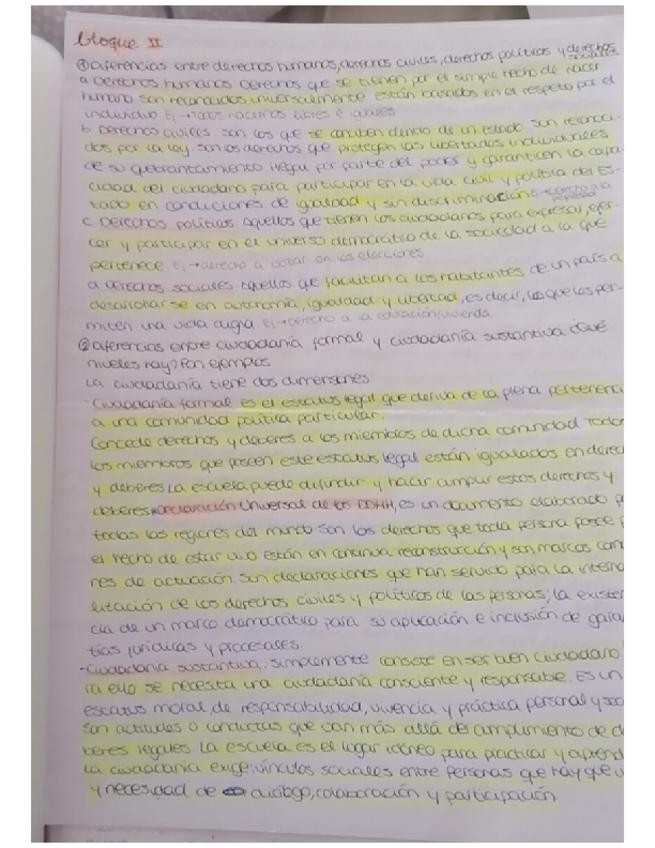 bloque II
① Diferencias entre derechos humanos, derechos civiles, derechos políticos y derechos sociales
a Derechos humanos Derechos que se tienen por el simple hecho de nacer
humano son reconocidos universalmente están basados en el respeto por el
individuo Ej→ todos nacemos libres e iguales
b Derechos civiles son los que se conciben dentro de un estado son reconoci-
dos por la ley son los derechos que protegen las libertades individuales
de su quebrantamiento ilegal por parte del poder y garanticen la capa-
cidad del ciudadano para participar en la vida civil y política del Es-
tado en condiciones de igualdad y sin discriminación Ej→ derecho a la
c Derechos políticos Aquellos que tienen los ciudadanos para expresar, ejer-
cer y participar en el universo democrático de la sociedad a la que
pertenece Ej→ derecho a votar en las elecciones
d Derechos sociales Aquellos que facilitan a los habitantes de un país a
desarrollarse en autonomía, igualdad y libertad, es decir, los que les per-
miten una vida digna Ej→ derecho a la educación/vivienda
② Diferencias entre ciudadanía formal y ciudadanía sustantiva ¿Qué
niveles hay? Pon ejemplos
La ciudadanía tiene dos dimensiones
- Ciudadanía formal es el estatus legal que deriva de la plena pertenenci
a una comunidad política particular.
Concede derechos y deberes a los miembros de dicha comunidad Todos
los miembros que poseen este estatus legal están igualados en derec
y deberes La escuela puede difundir y hacer cumplir estos derechos y
deberes Declaración Universal de los DDHH, es un documento elaborado p
todas las regiones del mundo son los derechos que toda persona posee p
el hecho de estar vivo están en continua reconstrucción y son marcos com
nes de actuación. Son declaraciones que han servido para la interna
de los derechos civiles y políticos de las personas; la existen
cia de un marco democrático para su aplicación e inclusión de garan
tías jurídicas y procesales.
- Ciudadanía sustantiva. simplemente consiste en ser buen ciudadano
ra ello se necesita una ciudadanía consciente y responsable. Es un
estatus moral, de responsabilidad, vivencia y práctica personal y soc
Son actitudes o conductas que van más allá del cumplimiento de d
beres legales La escuela es el lugar idóneo para practicar y aprend
La ciudadanía exige vínculos sociales entre personas que hay que
y necesidad de diálogo, colaboración y participación